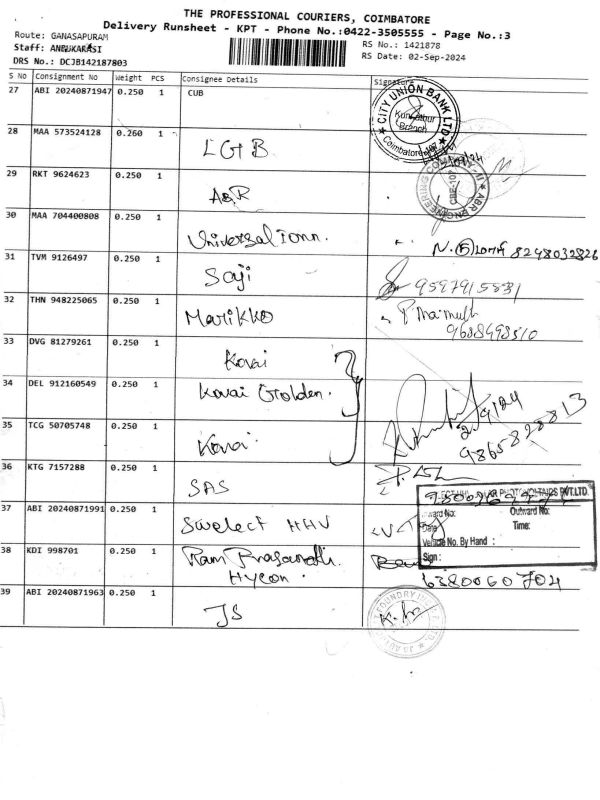 THE PROFESSIONAL COURIERS, COIMBATORE
Delivery Runsheet - KPT - Phone No.:0422-3505555 - Page No.:3
Route: GANASAPURAM
RS No.: 1421878
Staff: ANBUKARASI
RS Date: 02-Sep-2024
DRS No.: DCJB142187803
S No Consignment No Weight PCS Consignee Details Signature
27 ABI 20240871947 0.250 1 CUB
CITY UNION BANK LTD.
Branch
Coimbatore
28 MAA 573524128 0.260 1 LGB
29 RKT 9624623 0.250 1 A&R
ABR ENGINEERING COMPANY
CBE-107
30 MAA 704400808 0.250 1 Universal Tonn. 8248032826
31 TVM 9126497 0.250 1 Saji 9597915831
32 THN 948225065 0.250 1 Marikko
9688998510
33 DVG 81279261 0.250 1 Kovai
34 DEL 912160549 0.250 1 Kovai Golden.
2/9/24
35 TCG 50705748 0.250 1 Kovai.
9865828813
36 KTG 7157288 0.250 1 SAS
PHOTOVOLTAICS PVT.LTD.
Outward No:
Time:
37 ABI 20240871991 0.250 1 Swelect HHV
Vehicle No. By Hand :
Sign :
38 KDI 998701 0.250 1 Ram Prasanth
Hycon.
6380060704
39 ABI 20240871963 0.250 1 JS
FOUNDRY